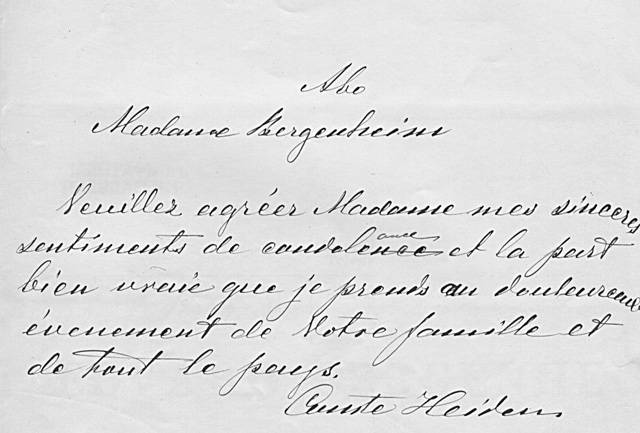 Abo
Madame Bergenheim
Veuillez agréer Madame mes sinceres
sentiments de condolence ance et la part
bien vraie que je prends au douloureux
évenement de Votre famille et
de tout le pays.
Comte Heiden